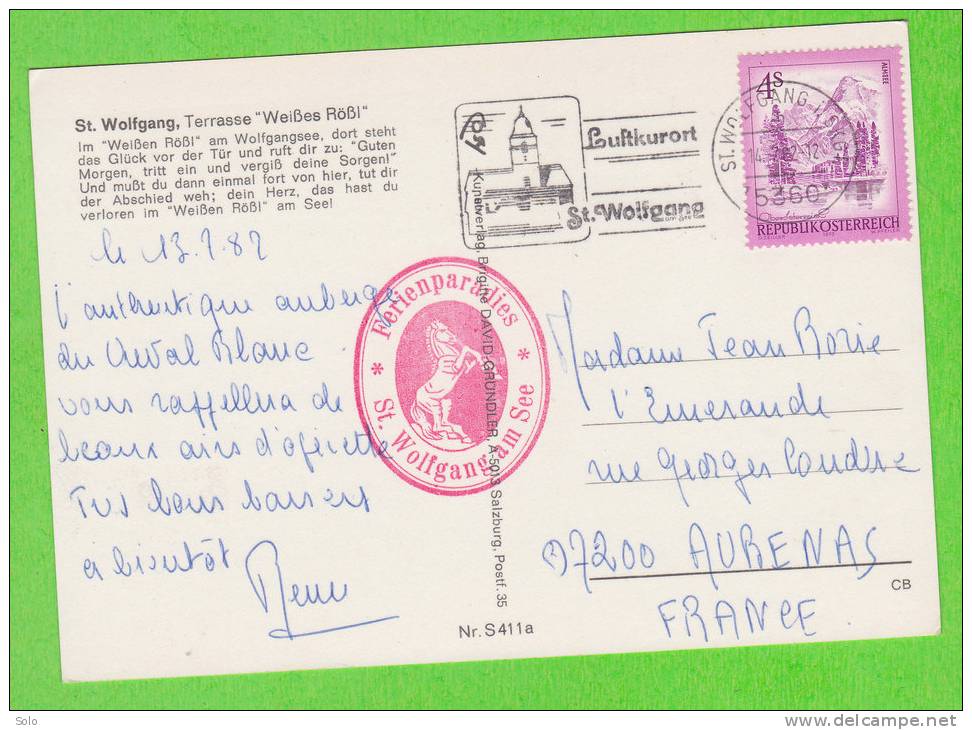 St. Wolfgang, Terrasse "Weißes Rößl"
Im "Weißen Rößl" am Wolfgangsee, dort steht
das Glück vor der Tür und ruft dir zu: "Guten
Morgen, tritt ein und vergiß deine Sorgen!"
Und mußt du dann einmal fort von hier, tut dir
der Abschied weh; dein Herz, das hast du
verloren im "Weißen Rößl" am See!
le 13.7.82
l'authentique auberge
du Cheval Blanc
vous rappellera de
beaux airs d'opérette
Très bons baisers
à bientôt
Ferienparadies
* St. Wolfgang am See *
Kunstverlag, Brigitte DAVID-GRÜNDLER, A-5013 Salzburg, Postf. 35
Nr. S411a
Luftkurort
St. Wolfgang
ST. WOLFGANG
5360
4S
ALMSEE
REPUBLIK ÖSTERREICH
Madame Jean Borie
l'Emeraude
rue Georges
07200 AUBENAS
FRANCE
CB
Solo
www.delcampe.net